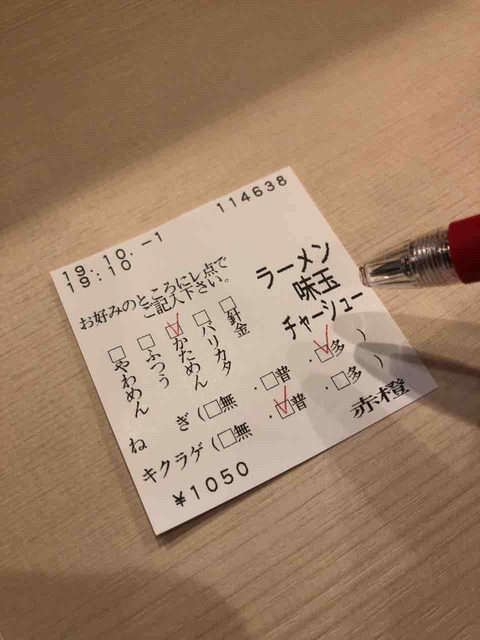 19.10.-1 114638
19:10
ラーメン
味玉
チャーシュー
お好みのところにレ点で
ご記入下さい。
□やわめん □ふつう ☑かためん □バリカタ □針金
ねぎ(□無・□普・☑多)
キクラゲ(□無・☑普・□多)
¥1050 赤橙